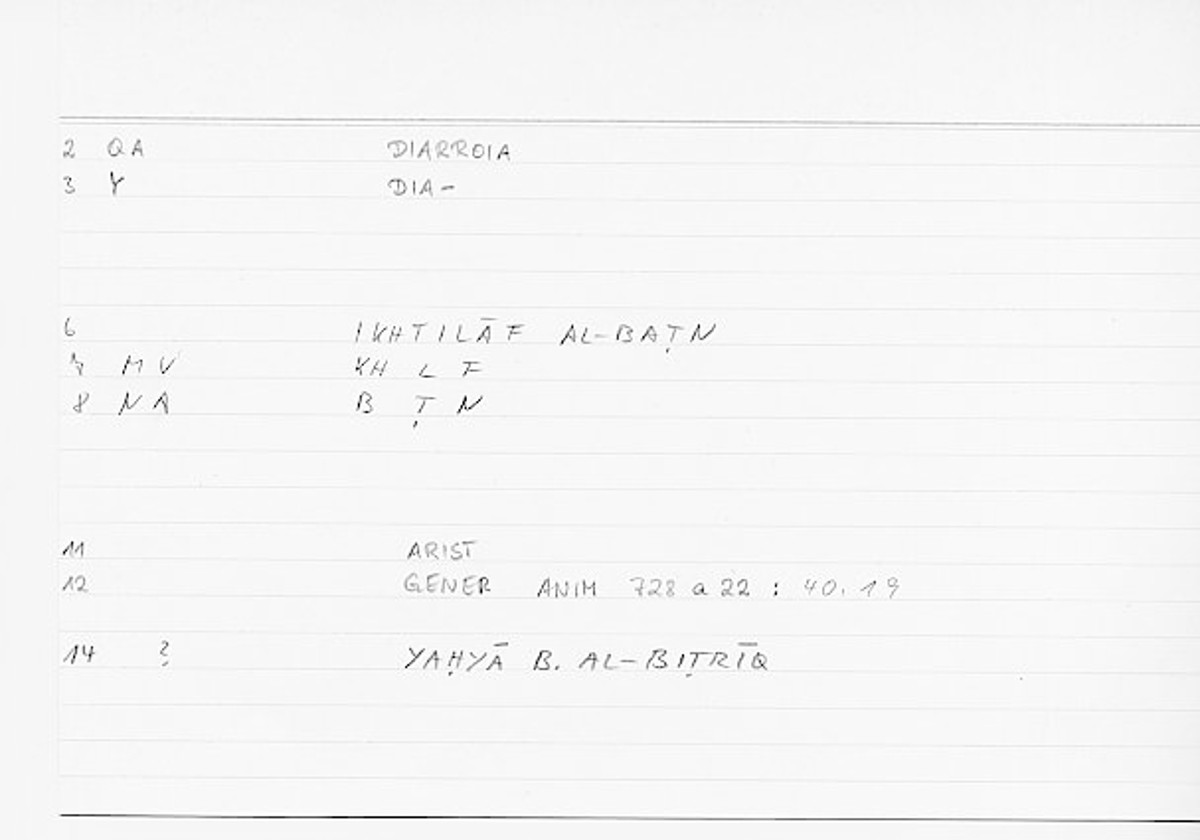 2 QA DIARROIA
3 Y DIA-
6 IKHTILĀF AL-BAṬN
7 MV KH L F
8 NA B Ṭ N
11 ARIST
12 GENER ANIM 728 a 22 : 40.19
14 ? YAḤYĀ B. AL-BIṬRĪQ